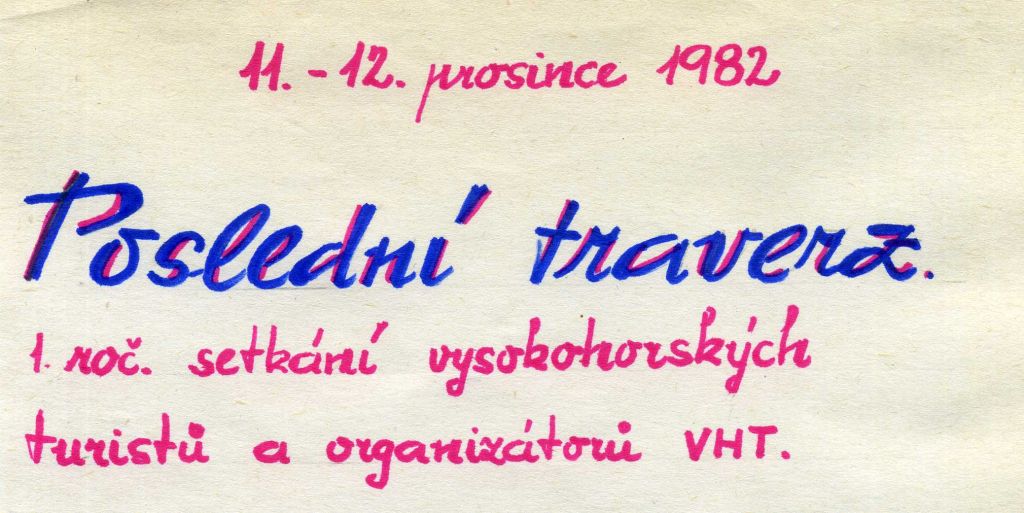 11. - 12. prosince 1982
Poslední traverz.
1. roč. setkání vysokohorských
turistů a organizátorů VHT.